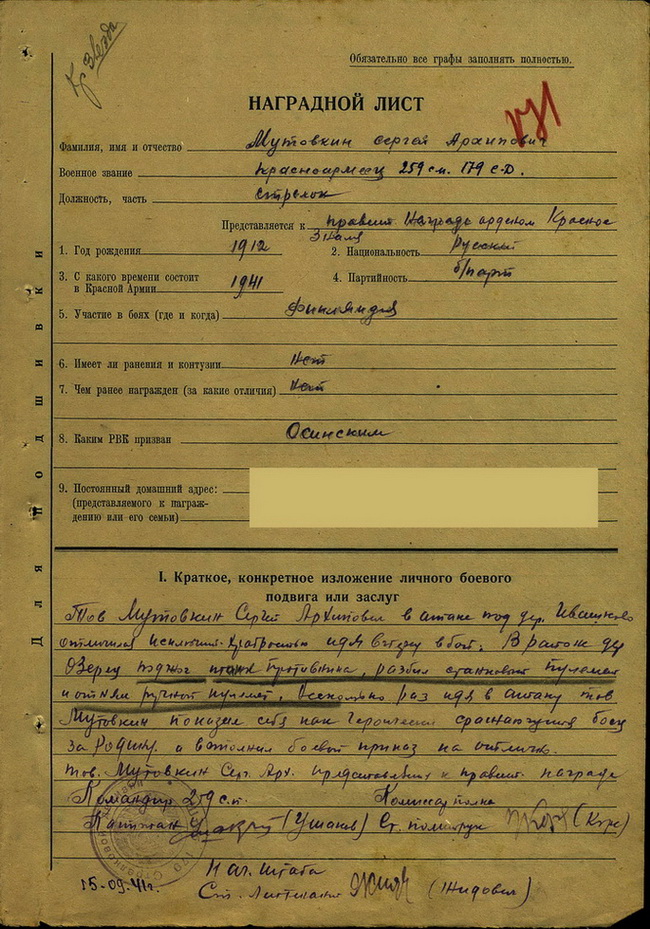 Кр Звезда
Обязательно все графы заполнять полностью.
НАГРАДНОЙ ЛИСТ
171
Фамилия, имя и отчество Мутовкин Сергей Архипович
Военное звание красноармеец 259 с.п. 179 с.д.
Должность, часть стрелок
Представляется к правит. награде орденом Красное
Знамя
1. Год рождения 1912 2. Национальность Русский
3. С какого времени состоит
в Красной Армии 1941 4. Партийность б/парт
5. Участие в боях (где и когда) Финляндия
6. Имеет ли ранения и контузии нет
7. Чем ранее награжден (за какие отличия) нет
8. Каким РВК призван Осинским
9. Постоянный домашний адрес:
(представляемого к награж-
дению или его семьи)
Для подшивки
I. Краткое, конкретное изложение личного боевого
подвига или заслуг
Тов Мутовкин Сергей Архипович в атаке под дер.
отличился исключит. храбростью идя в бой. В районе дер
Озерец поджог танк противника, разбил станковый пулемет
и отнял ручной пулемет, несколько раз идя в атаку тов
Мутовкин показал себя как героически сражающийся боец
за Родину. и выполнил боевой приказ на отлично.
тов. Мутовкин Серг. Арх. представлен к правит. награде
Командир 259 с.п. Комиссар полка
Капитан (Ушаков) Ст. политрук
Нач. штаба
Ст. Лейтенант
15.09.41г.